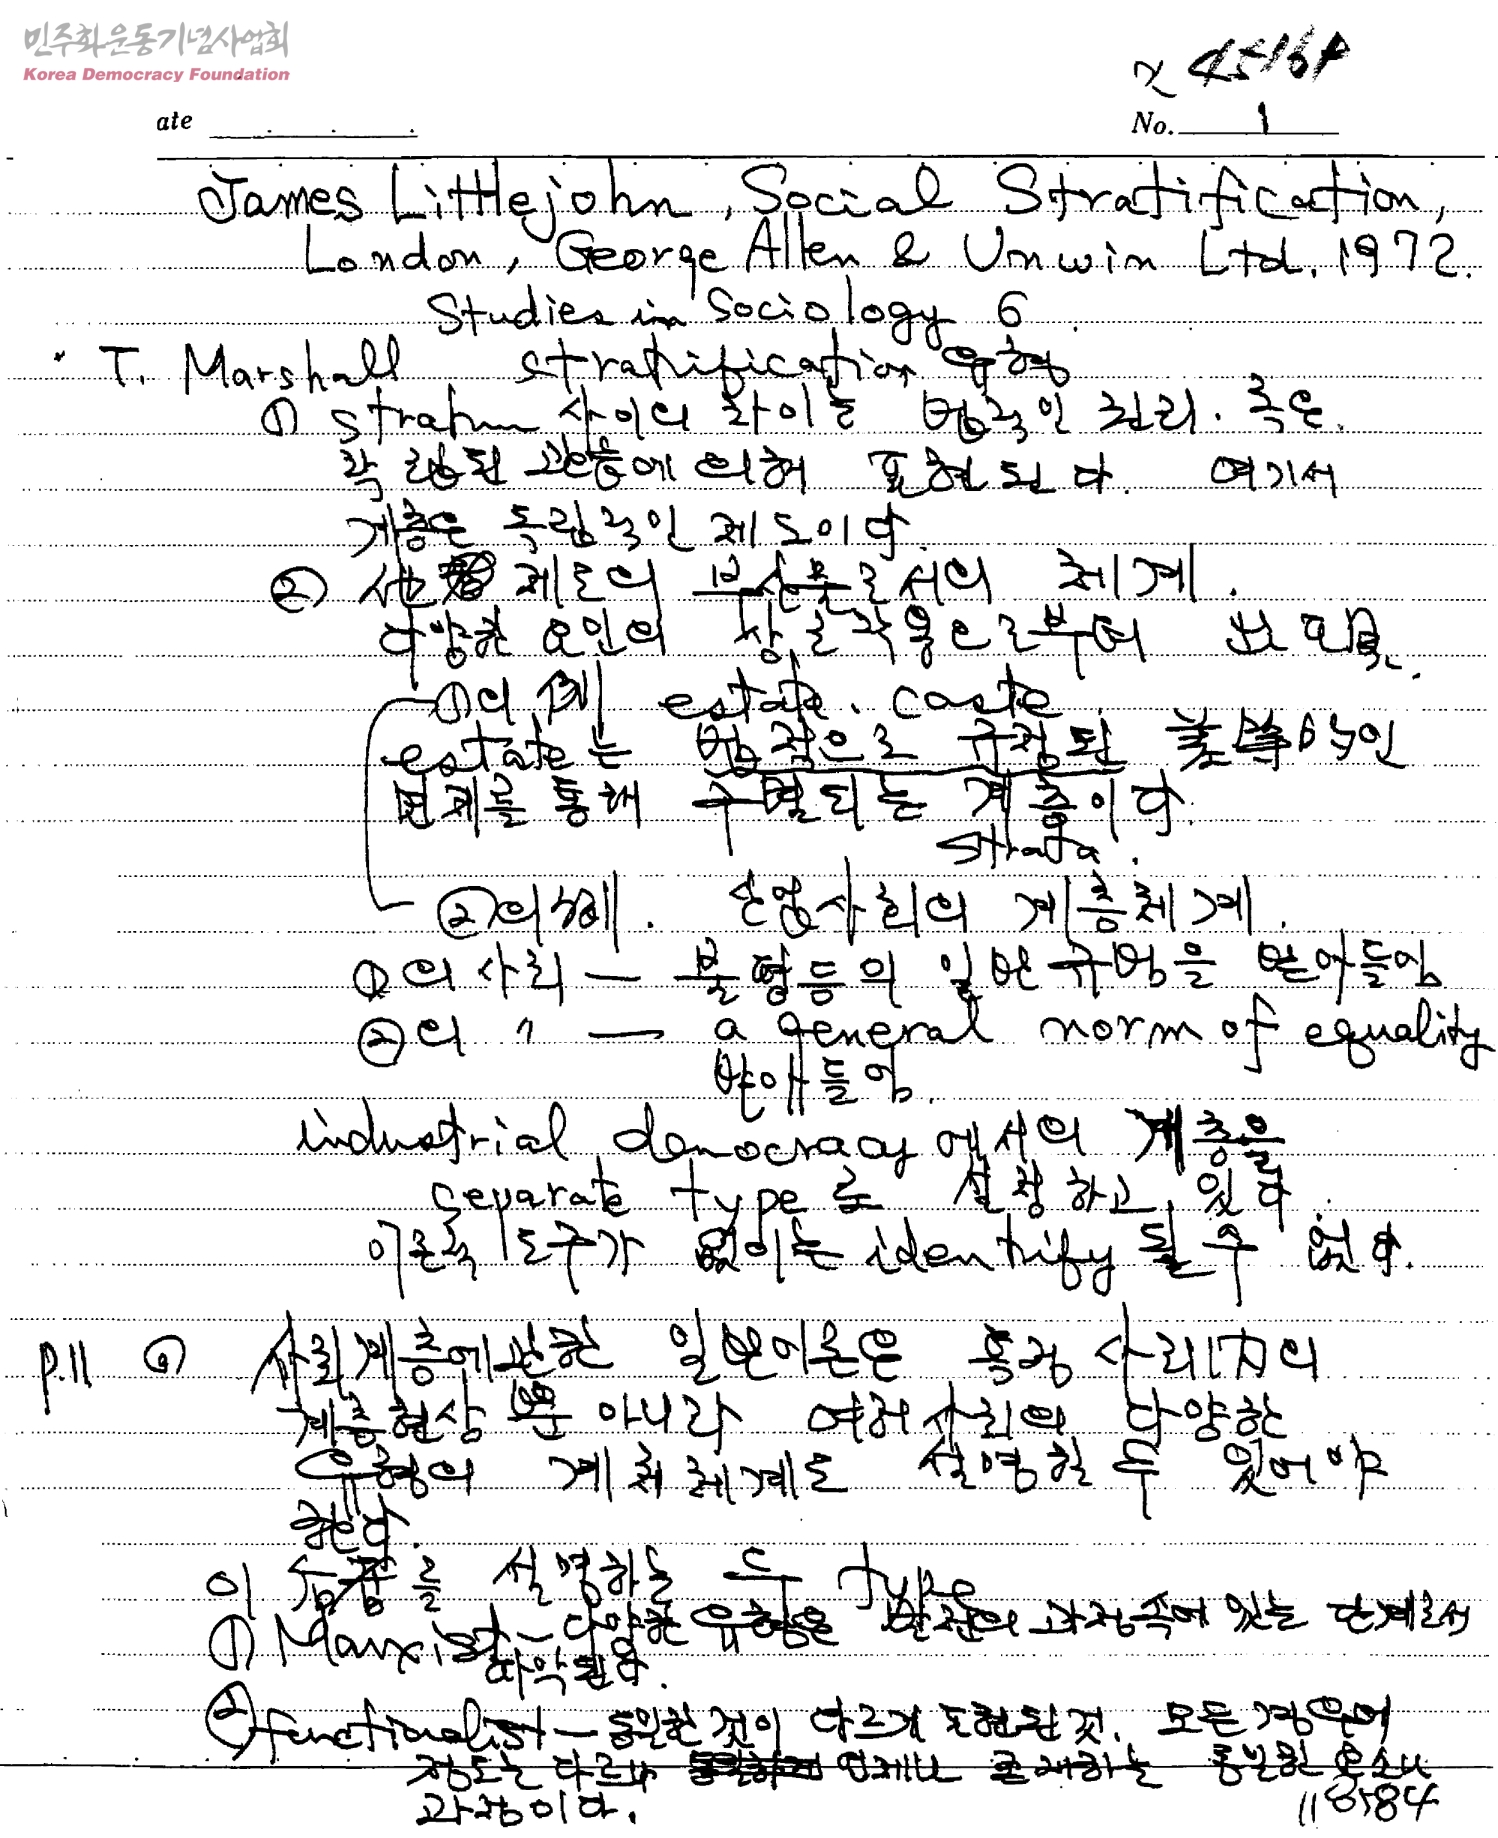 민주화운동기념사업회
Korea Democracy Foundation
ate
No. 1
James Littlejohn, Social Stratification,
London, George Allen & Unwin Ltd. 1972.
Studies in Sociology 6
T. Marshall stratification 유형
① stratum 사이의 차이는 법적인 권리. 혹은
확립된 관습에 의해 표현된다. 여기서
계층은 독립적인 제도이다.
② 제도의 부산물로서의 체계.
다양한 요인의 상호작용으로부터
①의 예 estate. caste
estate는 법적으로 규정된
면제를 통해 구별되는 계층이다.
strata.
②의 예. 산업사회의 계층체계.
①의 사회 — 불평등의 일반규범을 받아들임
②의 〃 — a general norm of equality
받아들임.
industrial democracy에서의 계층을
separate type로 설정하고 있다.
이론적 도구가 없이는 identify 될 수 없다.
p.11 ① 사회계층에 관한 일반이론은 특정 사회의
계층현상 뿐 아니라 여러 사회의 다양한
유형의 체계도 설명할 수 있어야
한다.
이 를 설명하는 두 type
① Marxist — 다양한 유형은 발전의 과정속에 있는 단계로서
파악된다.
② functionalist — 동일한 것이 다르게 표현된 것. 모든 경우에
정도는 다르나 언제나 존재하는 통일된 요소나
과정이다.